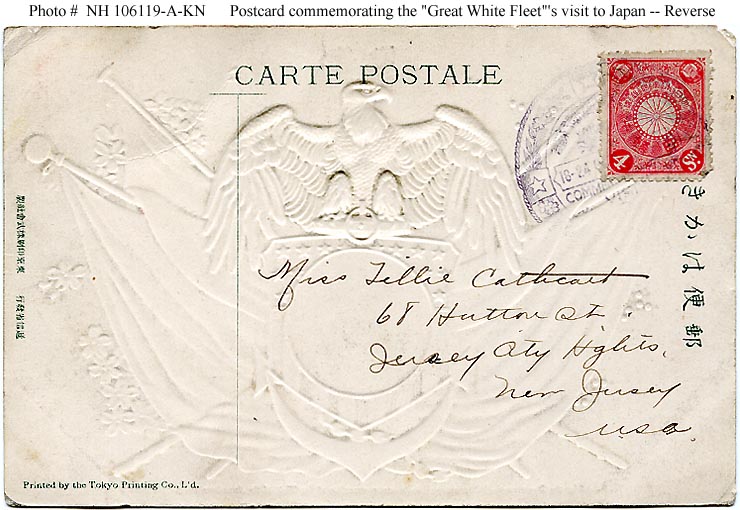 Photo # NH 106119-A-KN Postcard commemorating the "Great White Fleet"'s visit to Japan -- Reverse
CARTE POSTALE
4 Sn.
COMM
郵便はかき
Miss Tillie Cathcart
68 Hutton St.
Jersey City Hghts,
New Jersey
USA
遞信省發行
東京印刷株式會社製
Printed by the Tokyo Printing Co., L'd.